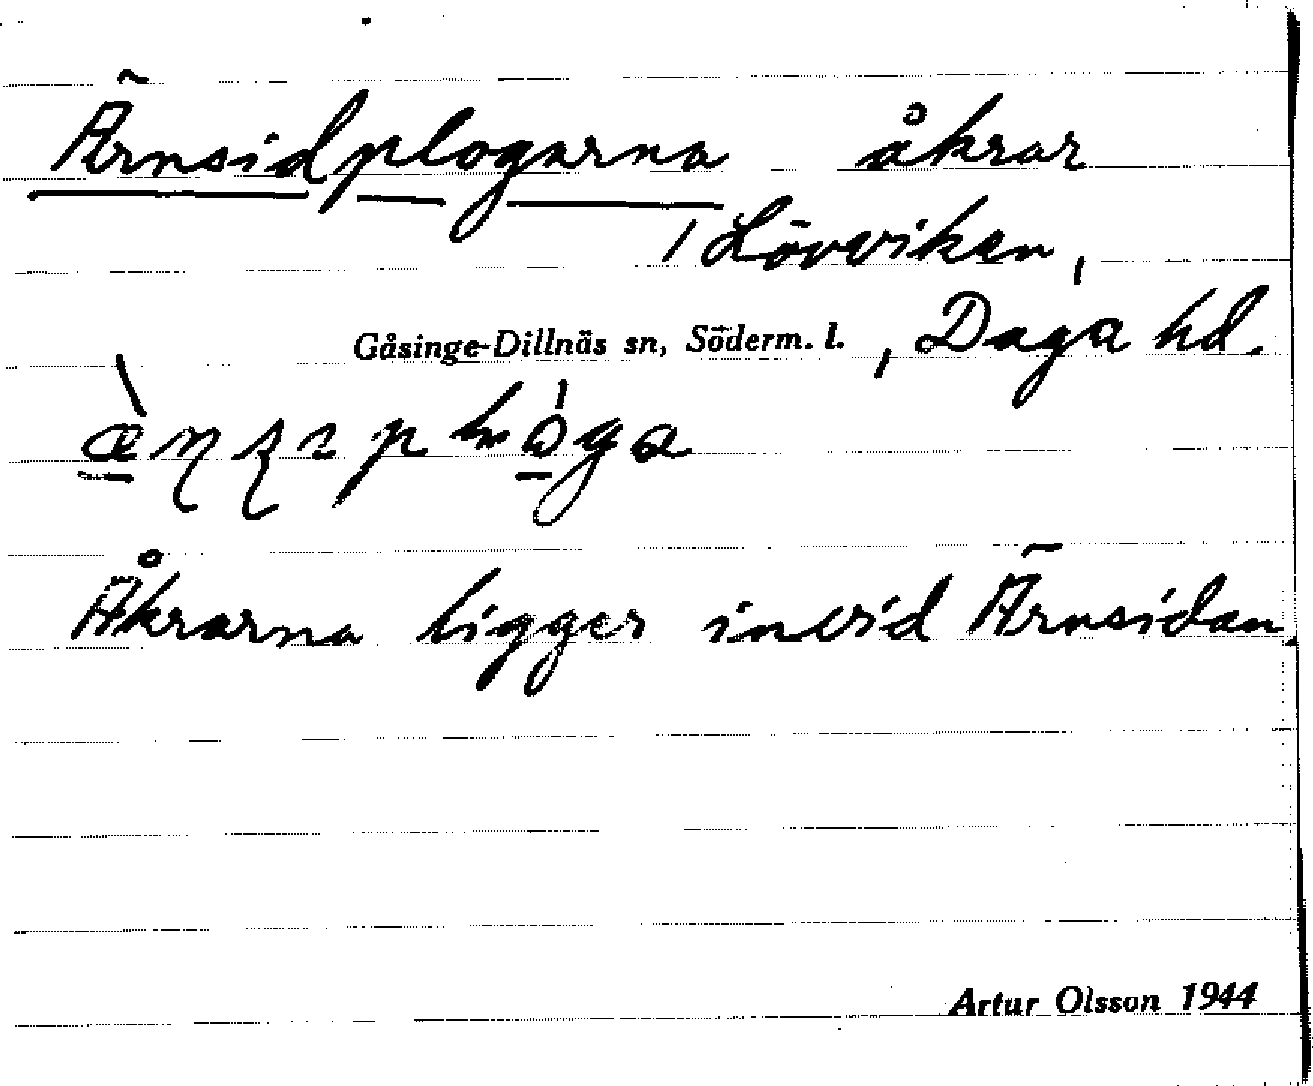 Ärnsidplogarna åkrar
/ Lövviken,
Gåsinge-Dillnäs sn, Söderm. l. , Daga hd.
Åkrarna ligger invid Ärnsidan.
Artur Olsson 1944